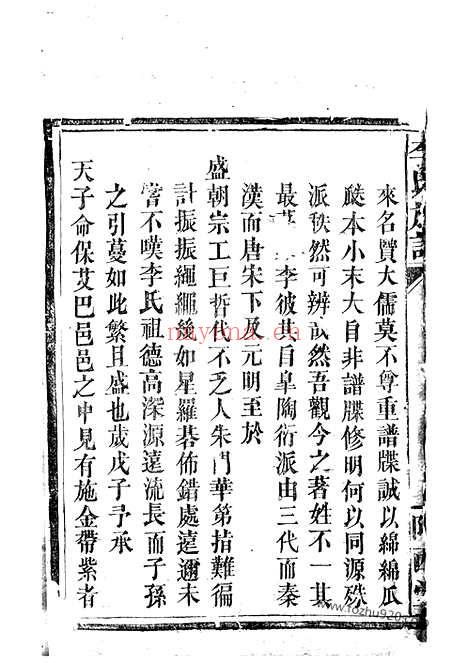 來名賢大儒莫不尊重譜牒誠以綿綿瓜
瓞本小末大自非譜牒修明何以同源殊
派秩然可辨誠然吾觀今之著姓不一其
最 李彼其自皐陶衍派由三代而秦
漢而唐宋下及元明至於
盛朝宗工巨哲代不乏人朱門華第指難徧
計振振繩繩後如星羅碁佈錯處遠邇未
嘗不嘆李氏祖德高深源遠流長而子孫
之引蔓如此繁且盛也歲戊子予承
天子命保艾巴邑邑之中見有施金帶紫者
李氏族譜